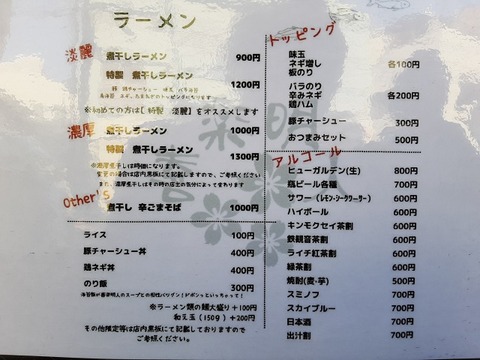 ラーメン
淡麗 煮干しラーメン 900円
特製 煮干しラーメン 1200円
※初めての方は【 特製 淡麗】をオススメします
濃厚 煮干しラーメン 1000円
特製 煮干しラーメン 1300円
※濃厚煮干しは時価になります。
変更の場合は店内黒板にて記載しますので、ご参照ください
また、濃厚煮干しはその時の店主の気分によって変わります
Other's
煮干し 辛ごまそば 1000円
ライス 100円
豚チャーシュー丼 400円
鶏ネギ丼 400円
のり飯 300円
※ラーメン類の麺大盛り+100円
和え玉(150g) +200円
その他限定等は店内黒板にて記載しておりますので
ご参考ください。
トッピング
味玉
ネギ増し 各100円
板のり
バラのり
辛みネギ 各200円
鶏ハム
豚チャーシュー 300円
おつまみセット 500円
アルコール
ヒューガルデン(生) 800円
瓶ビール各種 700円
サワー(レモン・シークワーサー) 600円
ハイボール 600円
キンモクセイ茶割 600円
鉄観音茶割 600円
ライチ紅茶割 600円
緑茶割 600円
焼酎(麦・芋) 500円
スミノフ 700円
スカイブルー 700円
日本酒 700円
出汁割 700円